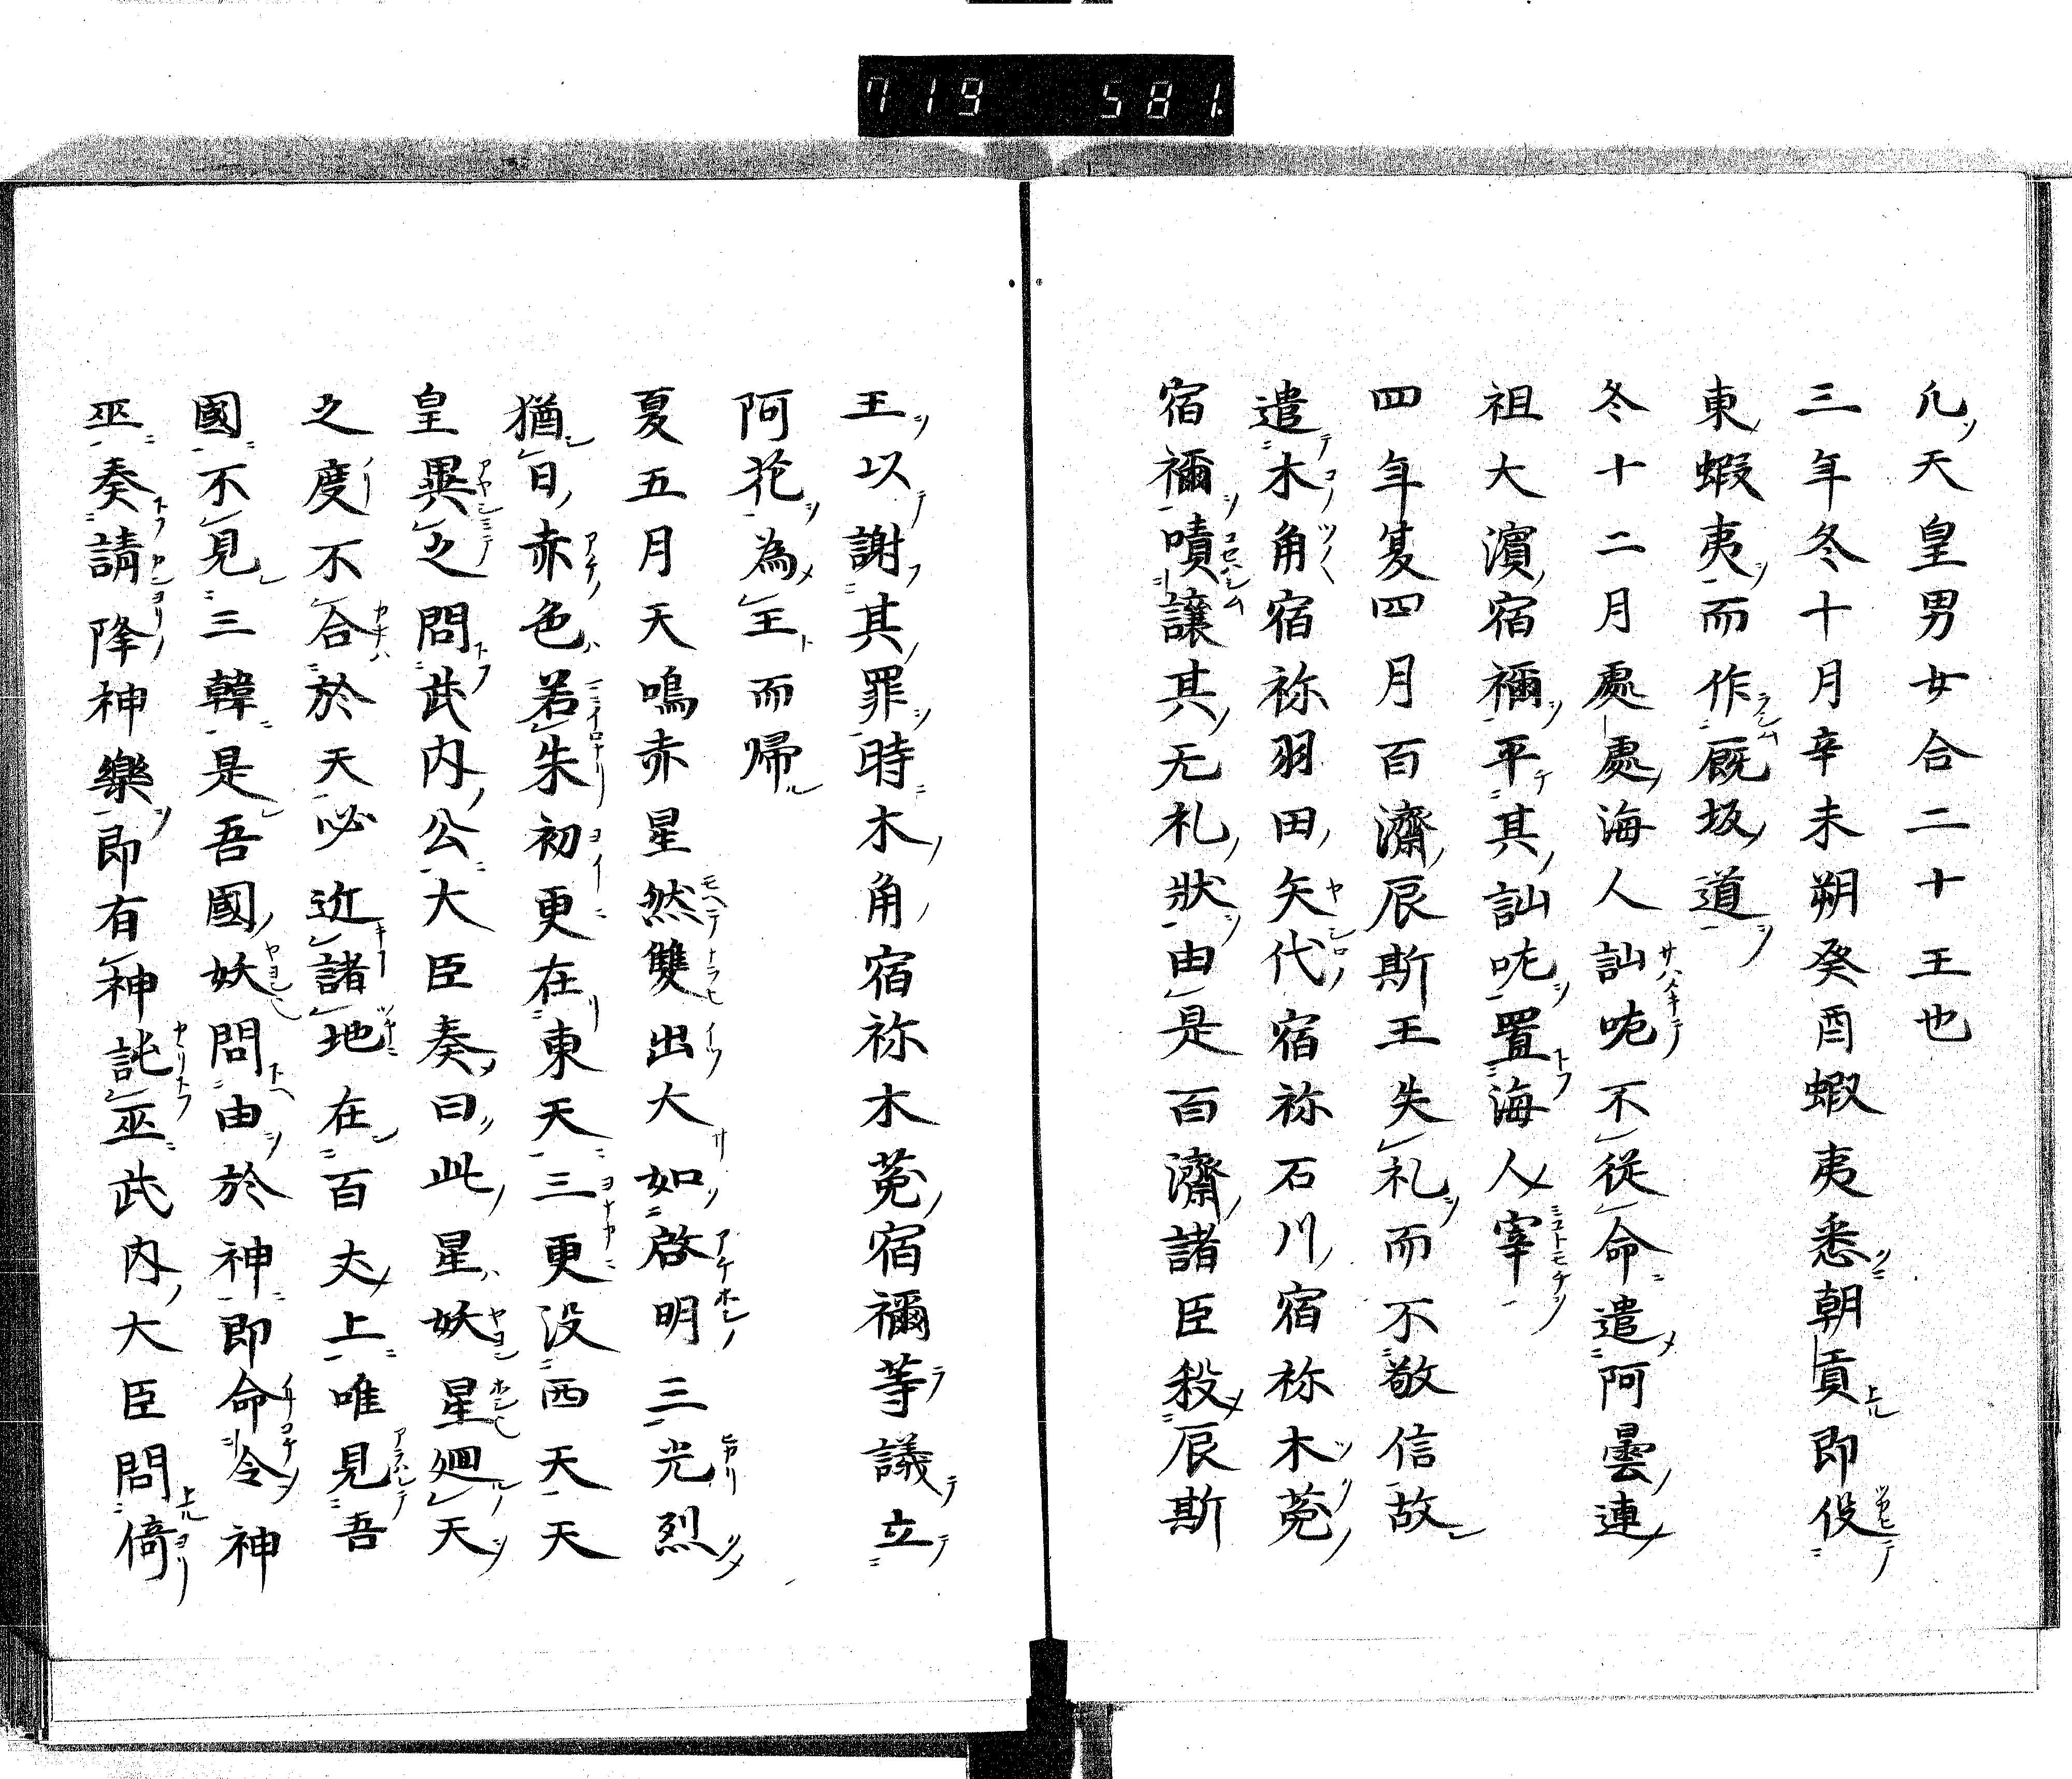 719 581.
凡天皇男女合二十王也
三年冬十月辛未朔癸酉蝦夷悉朝貢即役
東蝦夷而作厩坂道
冬十二月處處海人訕哤不從命遣阿曇連
祖大濵宿禰平其訕哤置海人宰
四年夏四月百濟辰斯王失礼而不敬信故
遣木角宿祢羽田矢代宿祢石川宿祢木菟
宿禰嘖譲其无礼狀由是百濟諸臣殺辰斯
王以謝其罪時木角宿祢木菟宿禰等議立
阿花為王而帰
夏五月天鳴赤星然雙出大如啓明三光烈
猶日赤色若朱初更在東天三更没西天天
皇異之問武内公大臣奏曰此星妖星廻天
之度不合於天必近諸地在百丈上唯見吾
國不見三韓是吾國妖問由於神即命令神
巫奏請降神樂即有神託巫武内大臣問倚